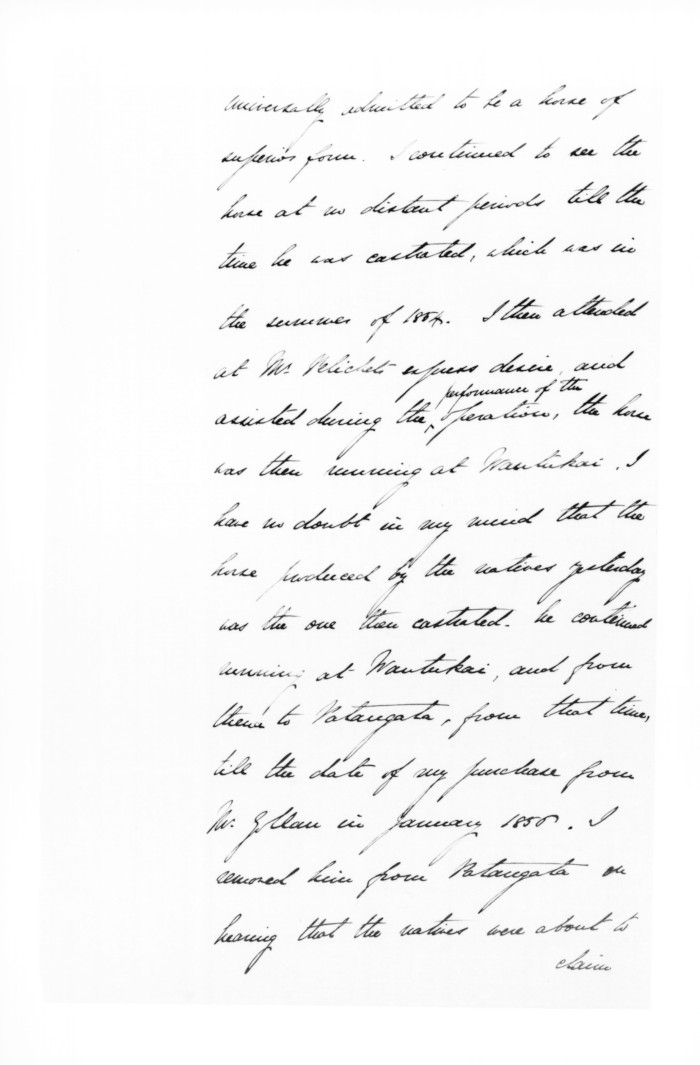 universally admitted to be a horse of
superior form. I continued to see the
horse at no distant periods till the
time he was castrated, which was in
the summer of 1854. I then attended
at Mr. express desire, and
performance of the
assisted during the operation, the horse
was then running at Wautukai. I
have no doubt in my mind that the
horse produced by the natives yesterday
was the one then castrated. he continued
running at Wautukai, and from
thence to Patangata, from that time,
till the date of my purchase from
Mr. Gollan in January. I
removed him from Patangata on
hearing that the natives were about to
claim